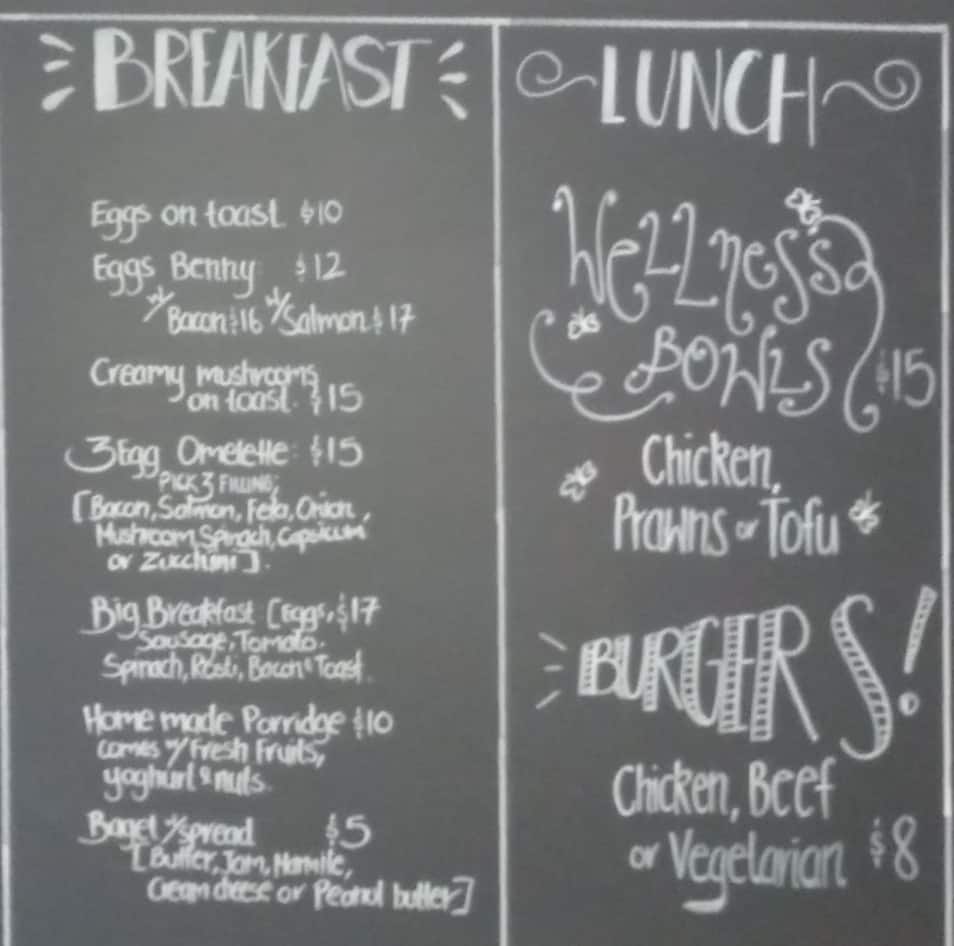 BREAKFAST
Eggs on toast $10
Eggs Benny $12
w/ Bacon $16 w/ Salmon $17
Creamy mushrooms
on toast. $15
3 Egg Omelette: $15
PICK 3 FILLING:
[Bacon, Salmon, Feta, Onion,
Mushroom, Spinach, Capsicum
or Zucchini].
Big Breakfast [Eggs, $17
Sausage, Tomato,
Spinach, Rosti, Bacon & Toast
Home made Porridge $10
comes w/ Fresh Fruits,
yoghurt & nuts.
Bagel w/ spread $5
[Butter, Jam,
Cream cheese or Peanut butter]
LUNCH
Wellness
Bowls $15
Chicken,
Prawns or Tofu
BURGERS!
Chicken, Beef
or Vegetarian $8